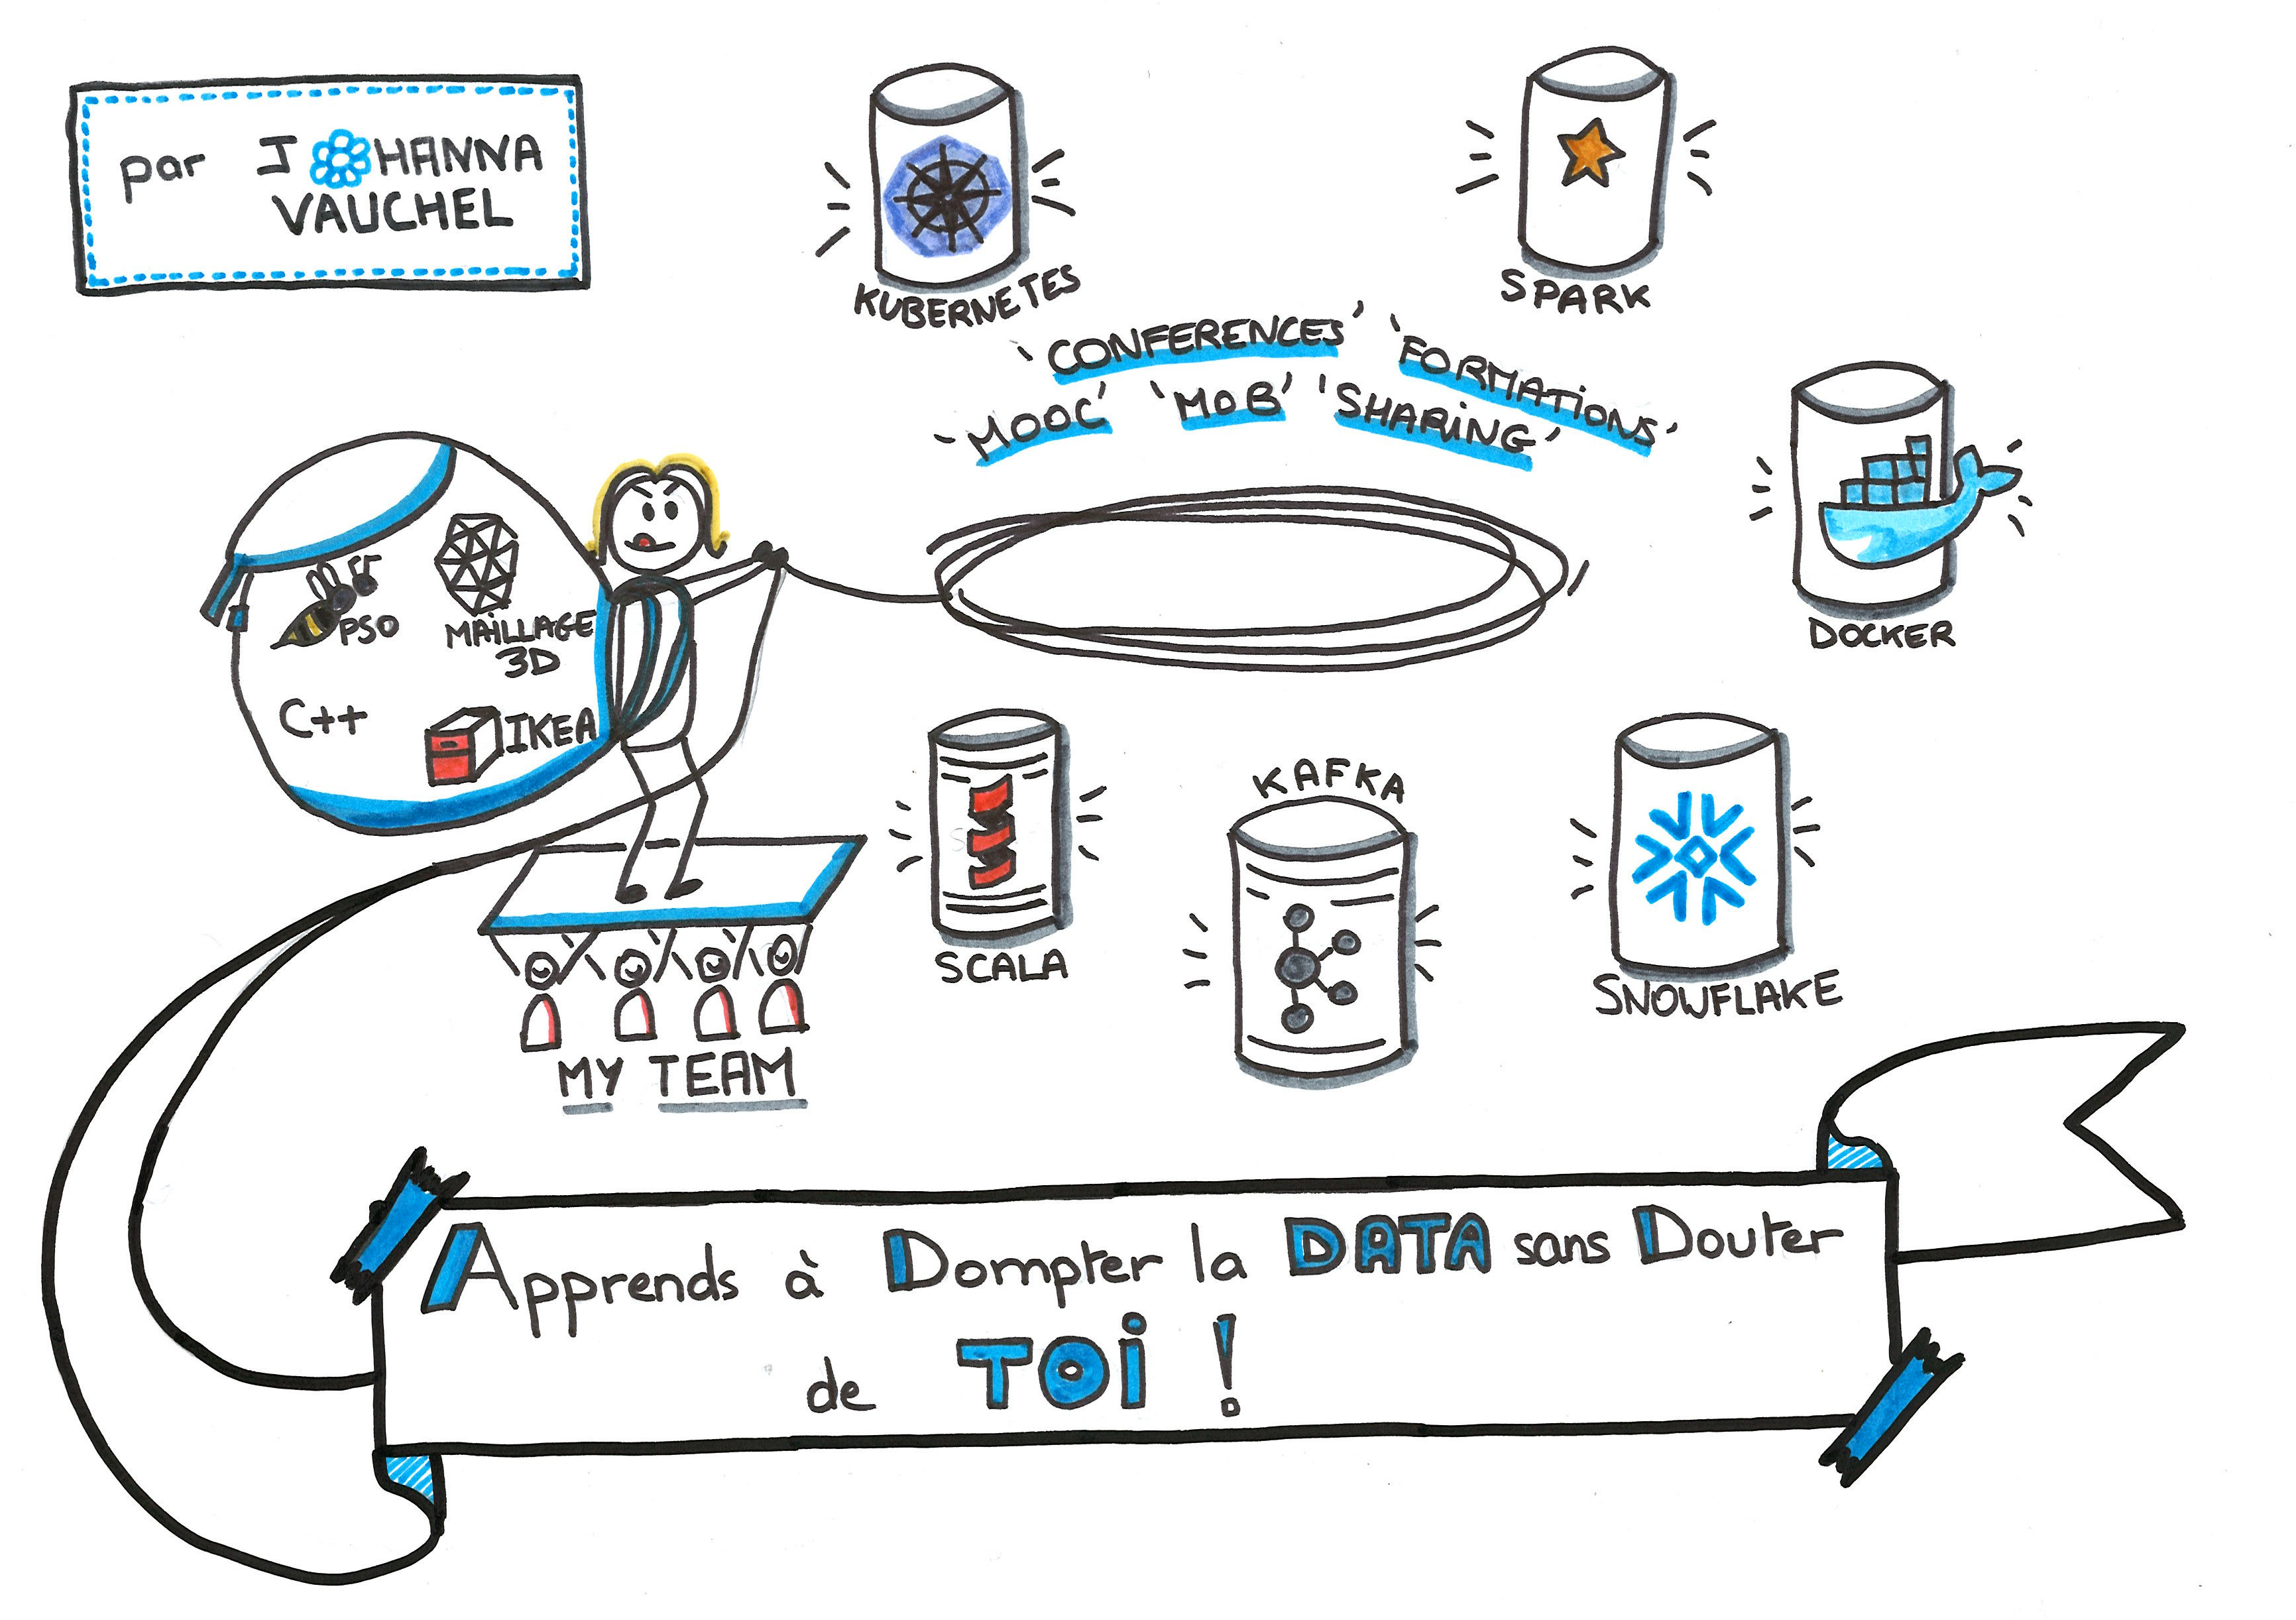 par JOHANNA
VAUCHEL
KUBERNETES
SPARK
'CONFERENCES' 'FORMATIONS'
'MOOC' 'MOB' 'SHARING'
DOCKER
PSO
MAILLAGE
3D
C++
IKEA
SCALA
KAFKA
SNOWFLAKE
MY TEAM
Apprends à Dompter la DATA sans Douter
de TOI !